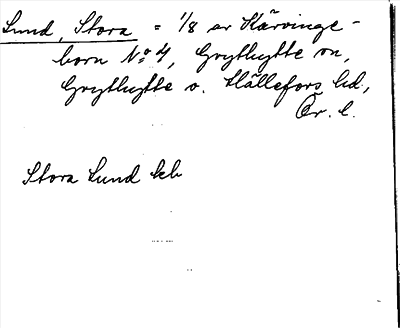 Lund, Stora = 1/8 av Kärvinge-
born No 4, Grythytte sn,
Grythytte o. Hällefors hd,
Ör. l.
Stora Lund kb